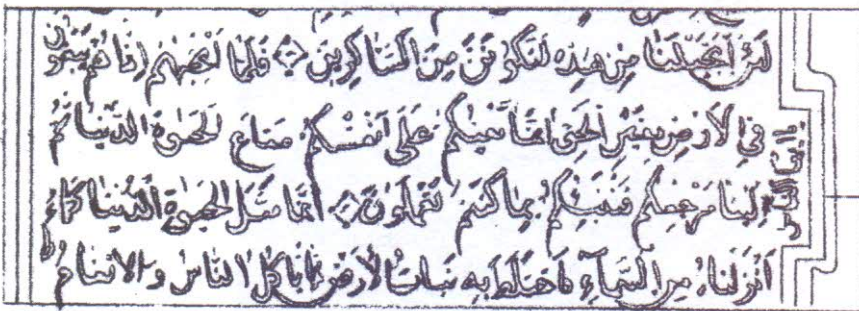 لَئِنْ اَنْجَيْتَنَا مِنْ هٰذِهِ لَنَكُونَنَّ مِنَ الشَّاكِرِينَ فَلَمَّا اَنْجٰيهُمْ اِذَا هُمْ يَبْغُونَ
فِى الْاَرْضِ بِغَيْرِ الْحَقِّ اِنَّمَا بَغْيُكُمْ عَلٰى اَنْفُسِكُمْ مَتَاعَ الْحَيٰوةِ الدُّنْيَا ثُمَّ
اِلَيْنَا مَرْجِعُكُمْ فَنُنَبِّئُكُمْ بِمَا كُنْتُمْ تَعْمَلُونَ اِنَّمَا مَثَلُ الْحَيٰوةِ الدُّنْيَا كَمَاءٍ
اَنْزَلْنَاهُ مِنَ السَّمَآءِ فَاخْتَلَطَ بِهِ نَبَاتُ الْاَرْضِ مِمَّا يَأْكُلُ النَّاسُ وَالْاَنْعَامُ